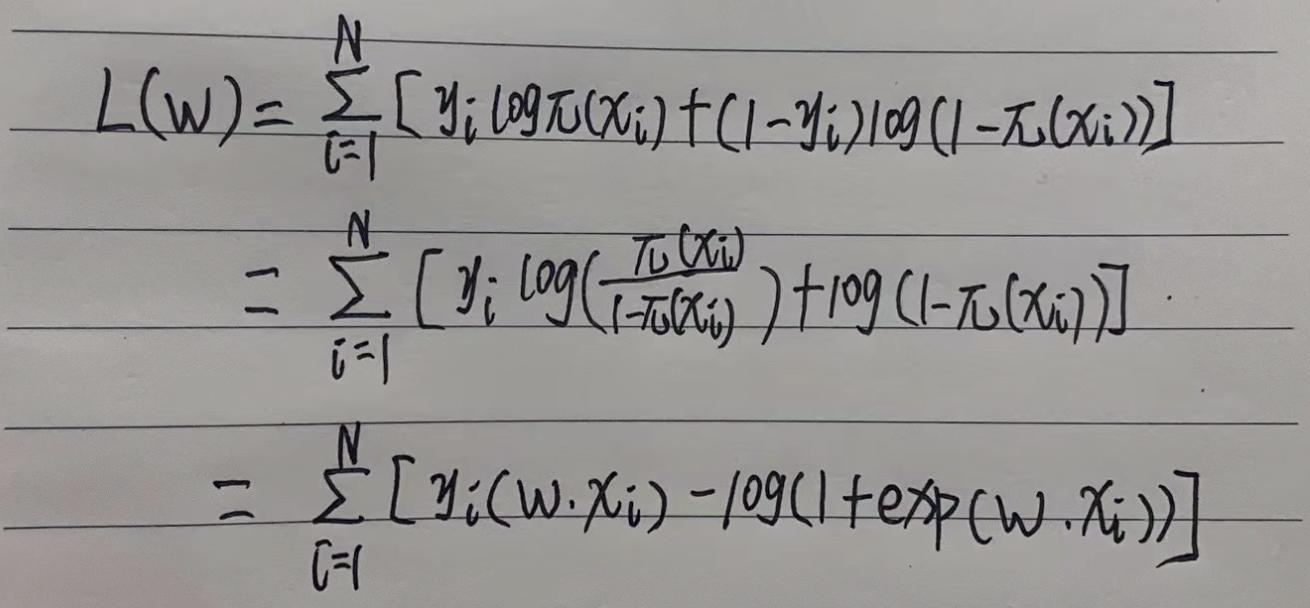 L(w) = \sum_{i=1}^{N} [y_i \log \pi(x_i) + (1 - y_i) \log(1 - \pi(x_i))]
= \sum_{i=1}^{N} [y_i \log(\frac{\pi(x_i)}{1 - \pi(x_i)}) + \log(1 - \pi(x_i))]
= \sum_{i=1}^{N} [y_i(w \cdot x_i) - \log(1 + \exp(w \cdot x_i))]